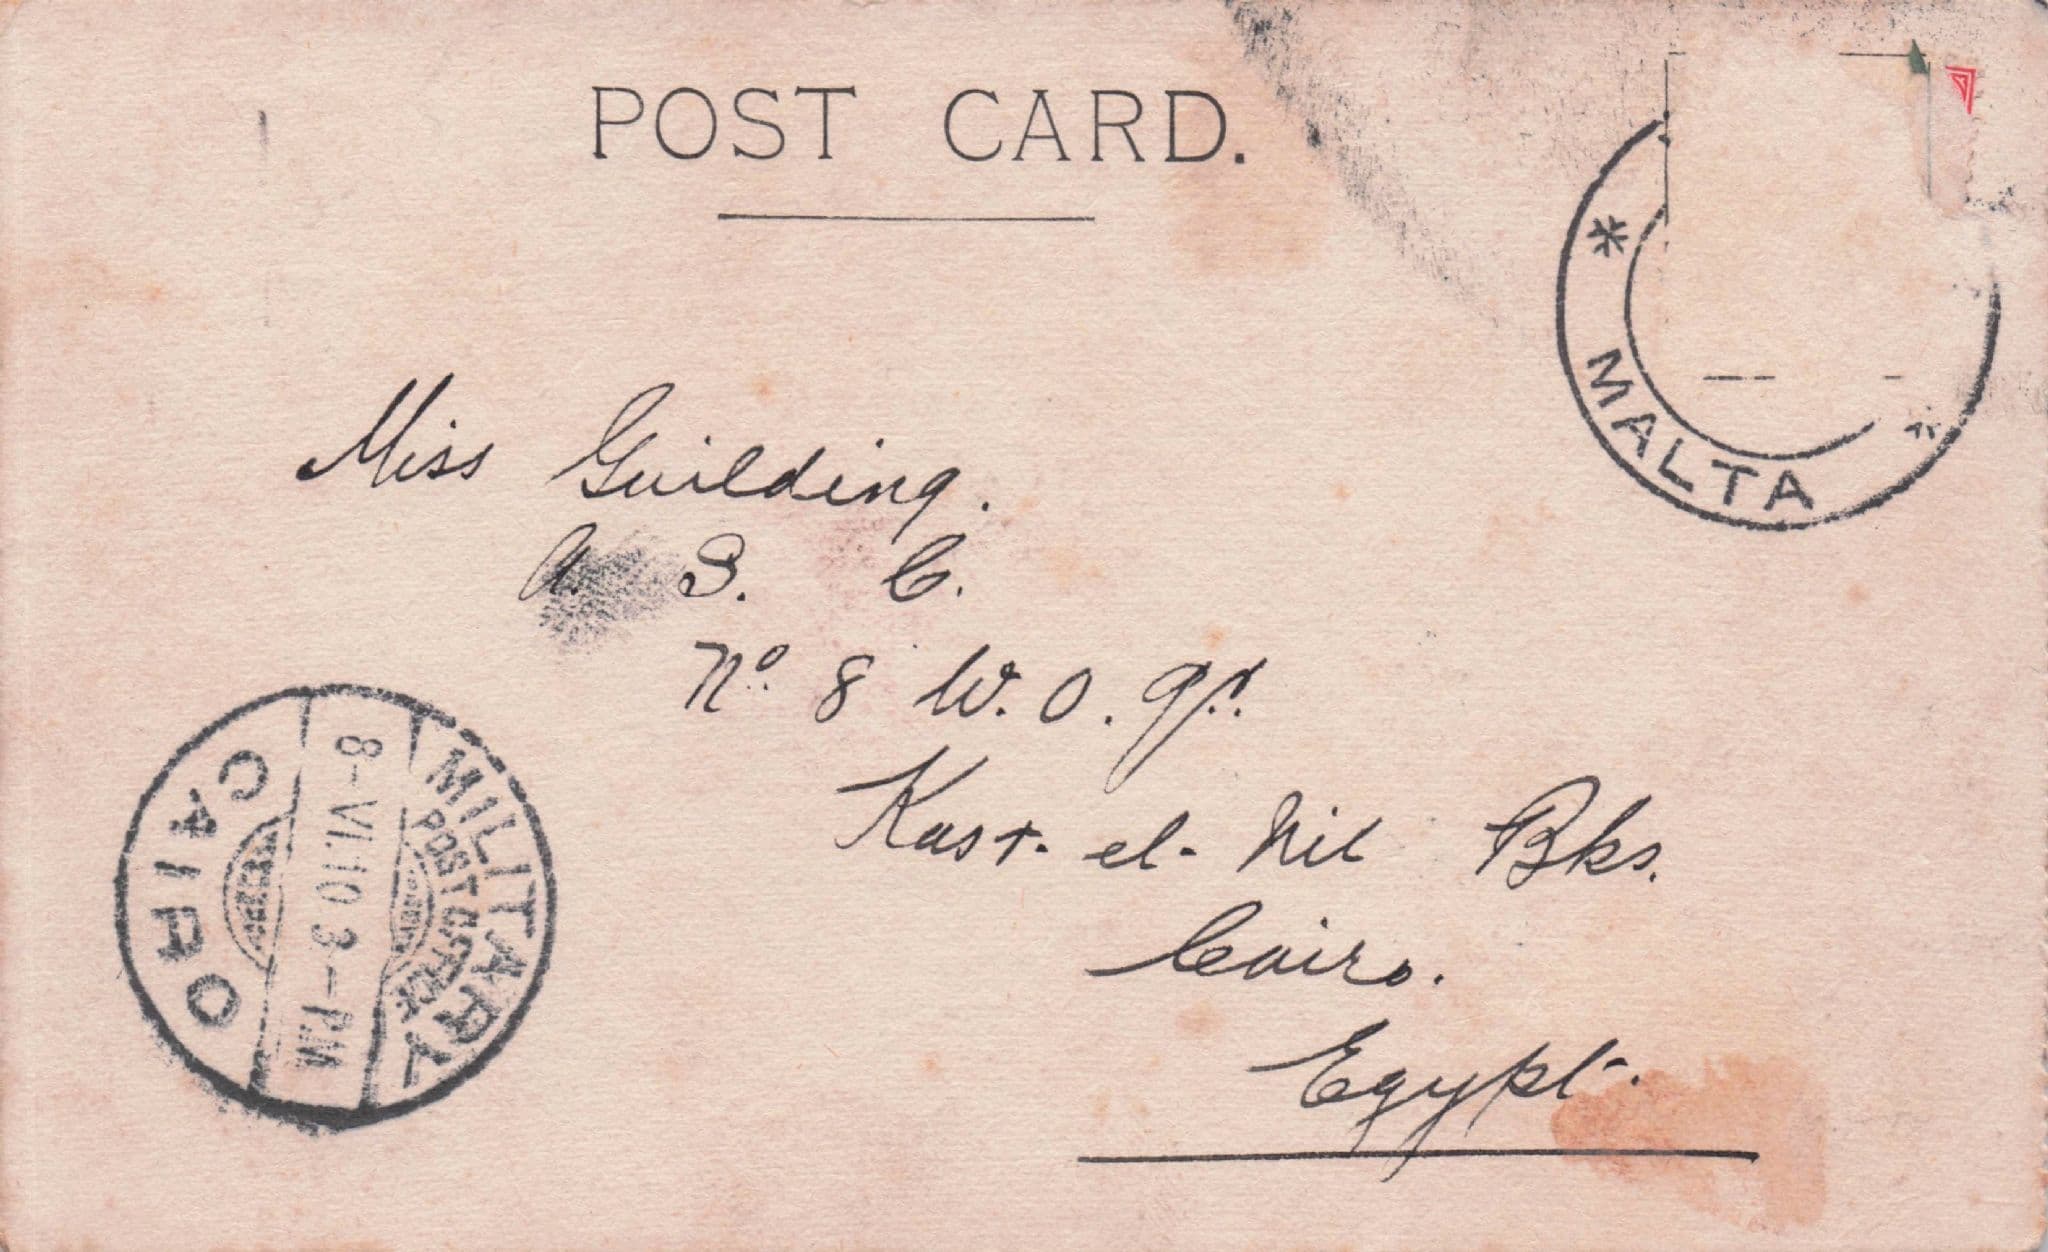 POST CARD.
* MALTA *
Miss Guilding.
A. S. C.
No. 8 W.O. qr.
Kasr-el-Nil Bks.
Cairo.
Egypt.
MILITARY
POST OFFICE
8-VI.10 3-P.M
CAIRO